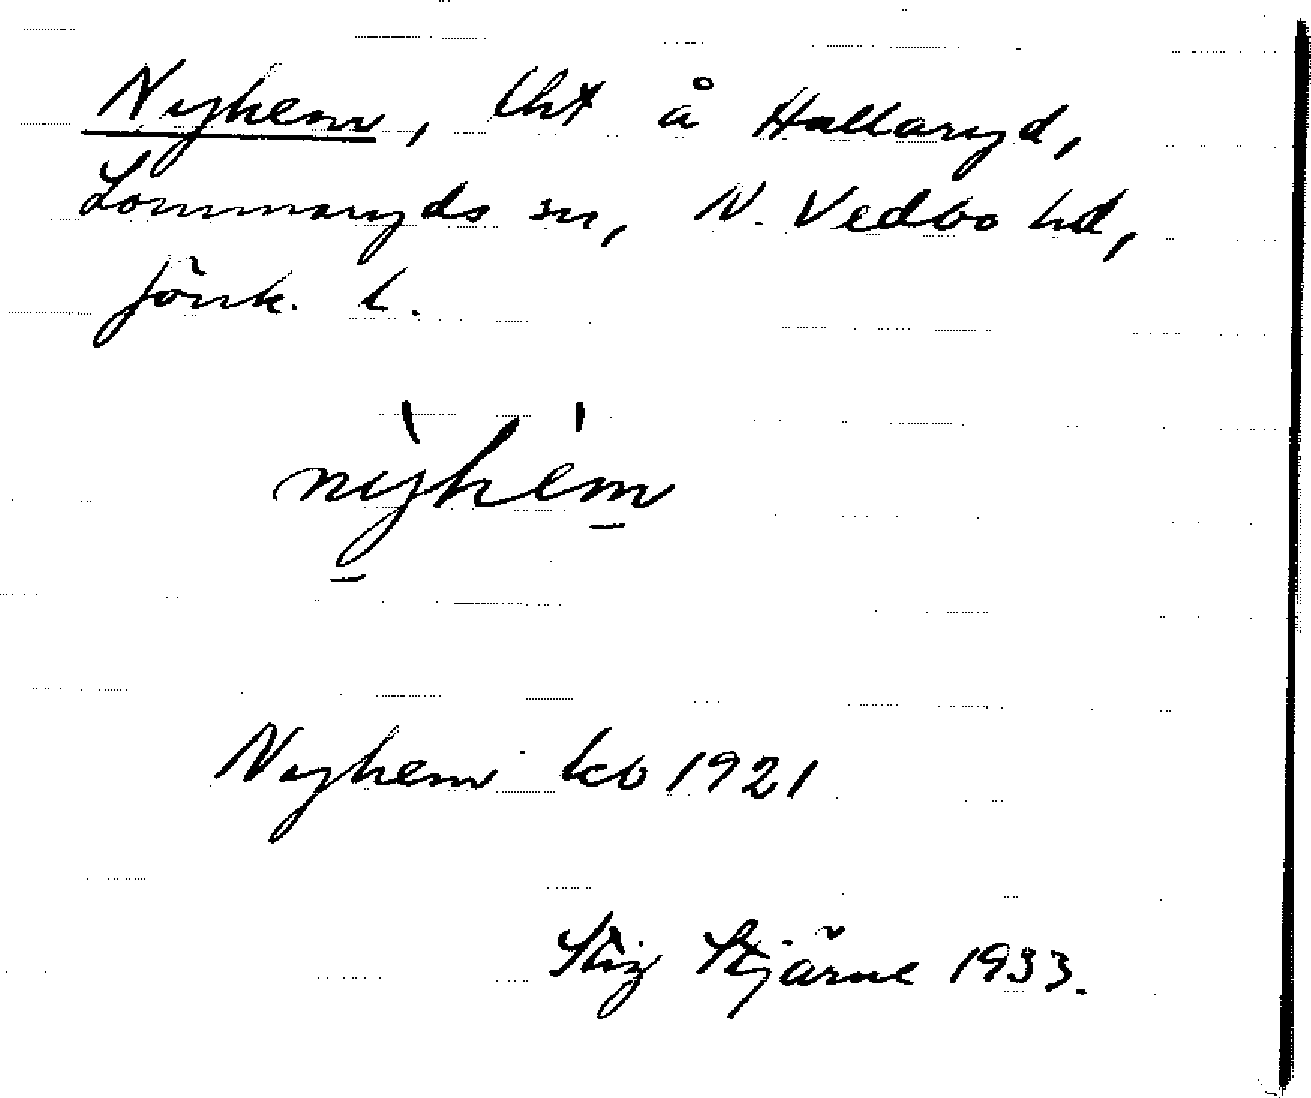 Nyhem, lht å Hallaryd,
Lommaryds sn, N. Vedbo hd,
Jönk. l.
nỳhém
Nyhem kb 1921
Stig Stjärne 1933.